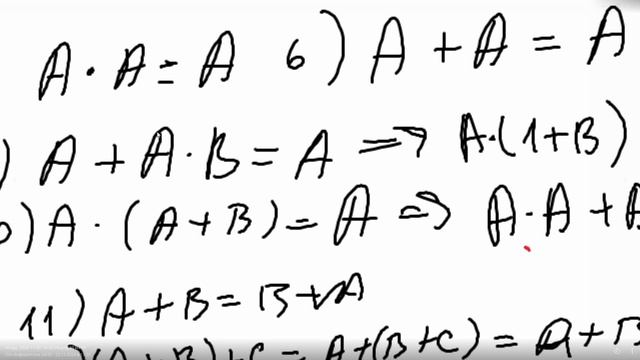 A · A = A 6) A + A = A
) A + A · B = A => A·(1+B)
) A · (A + B) = A => A · A +
11) A + B = B + A
+ C = A+(B+C) = A+B